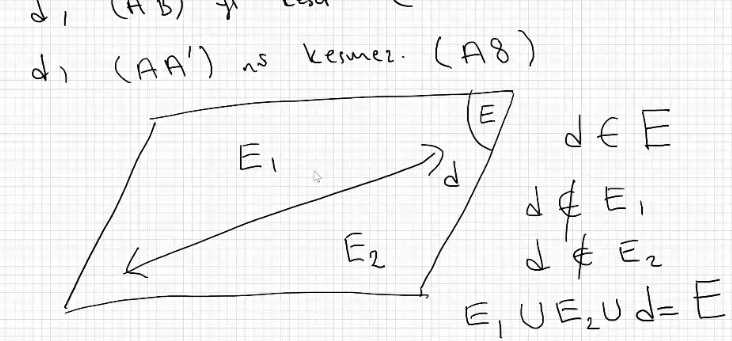 d, (AB) yi
d, (AA') nş kesmez. (A8)
E
E₁
d
E₂
d ∈ E
d ∉ E₁
d ∉ E₂
E₁ ∪ E₂ ∪ d = E